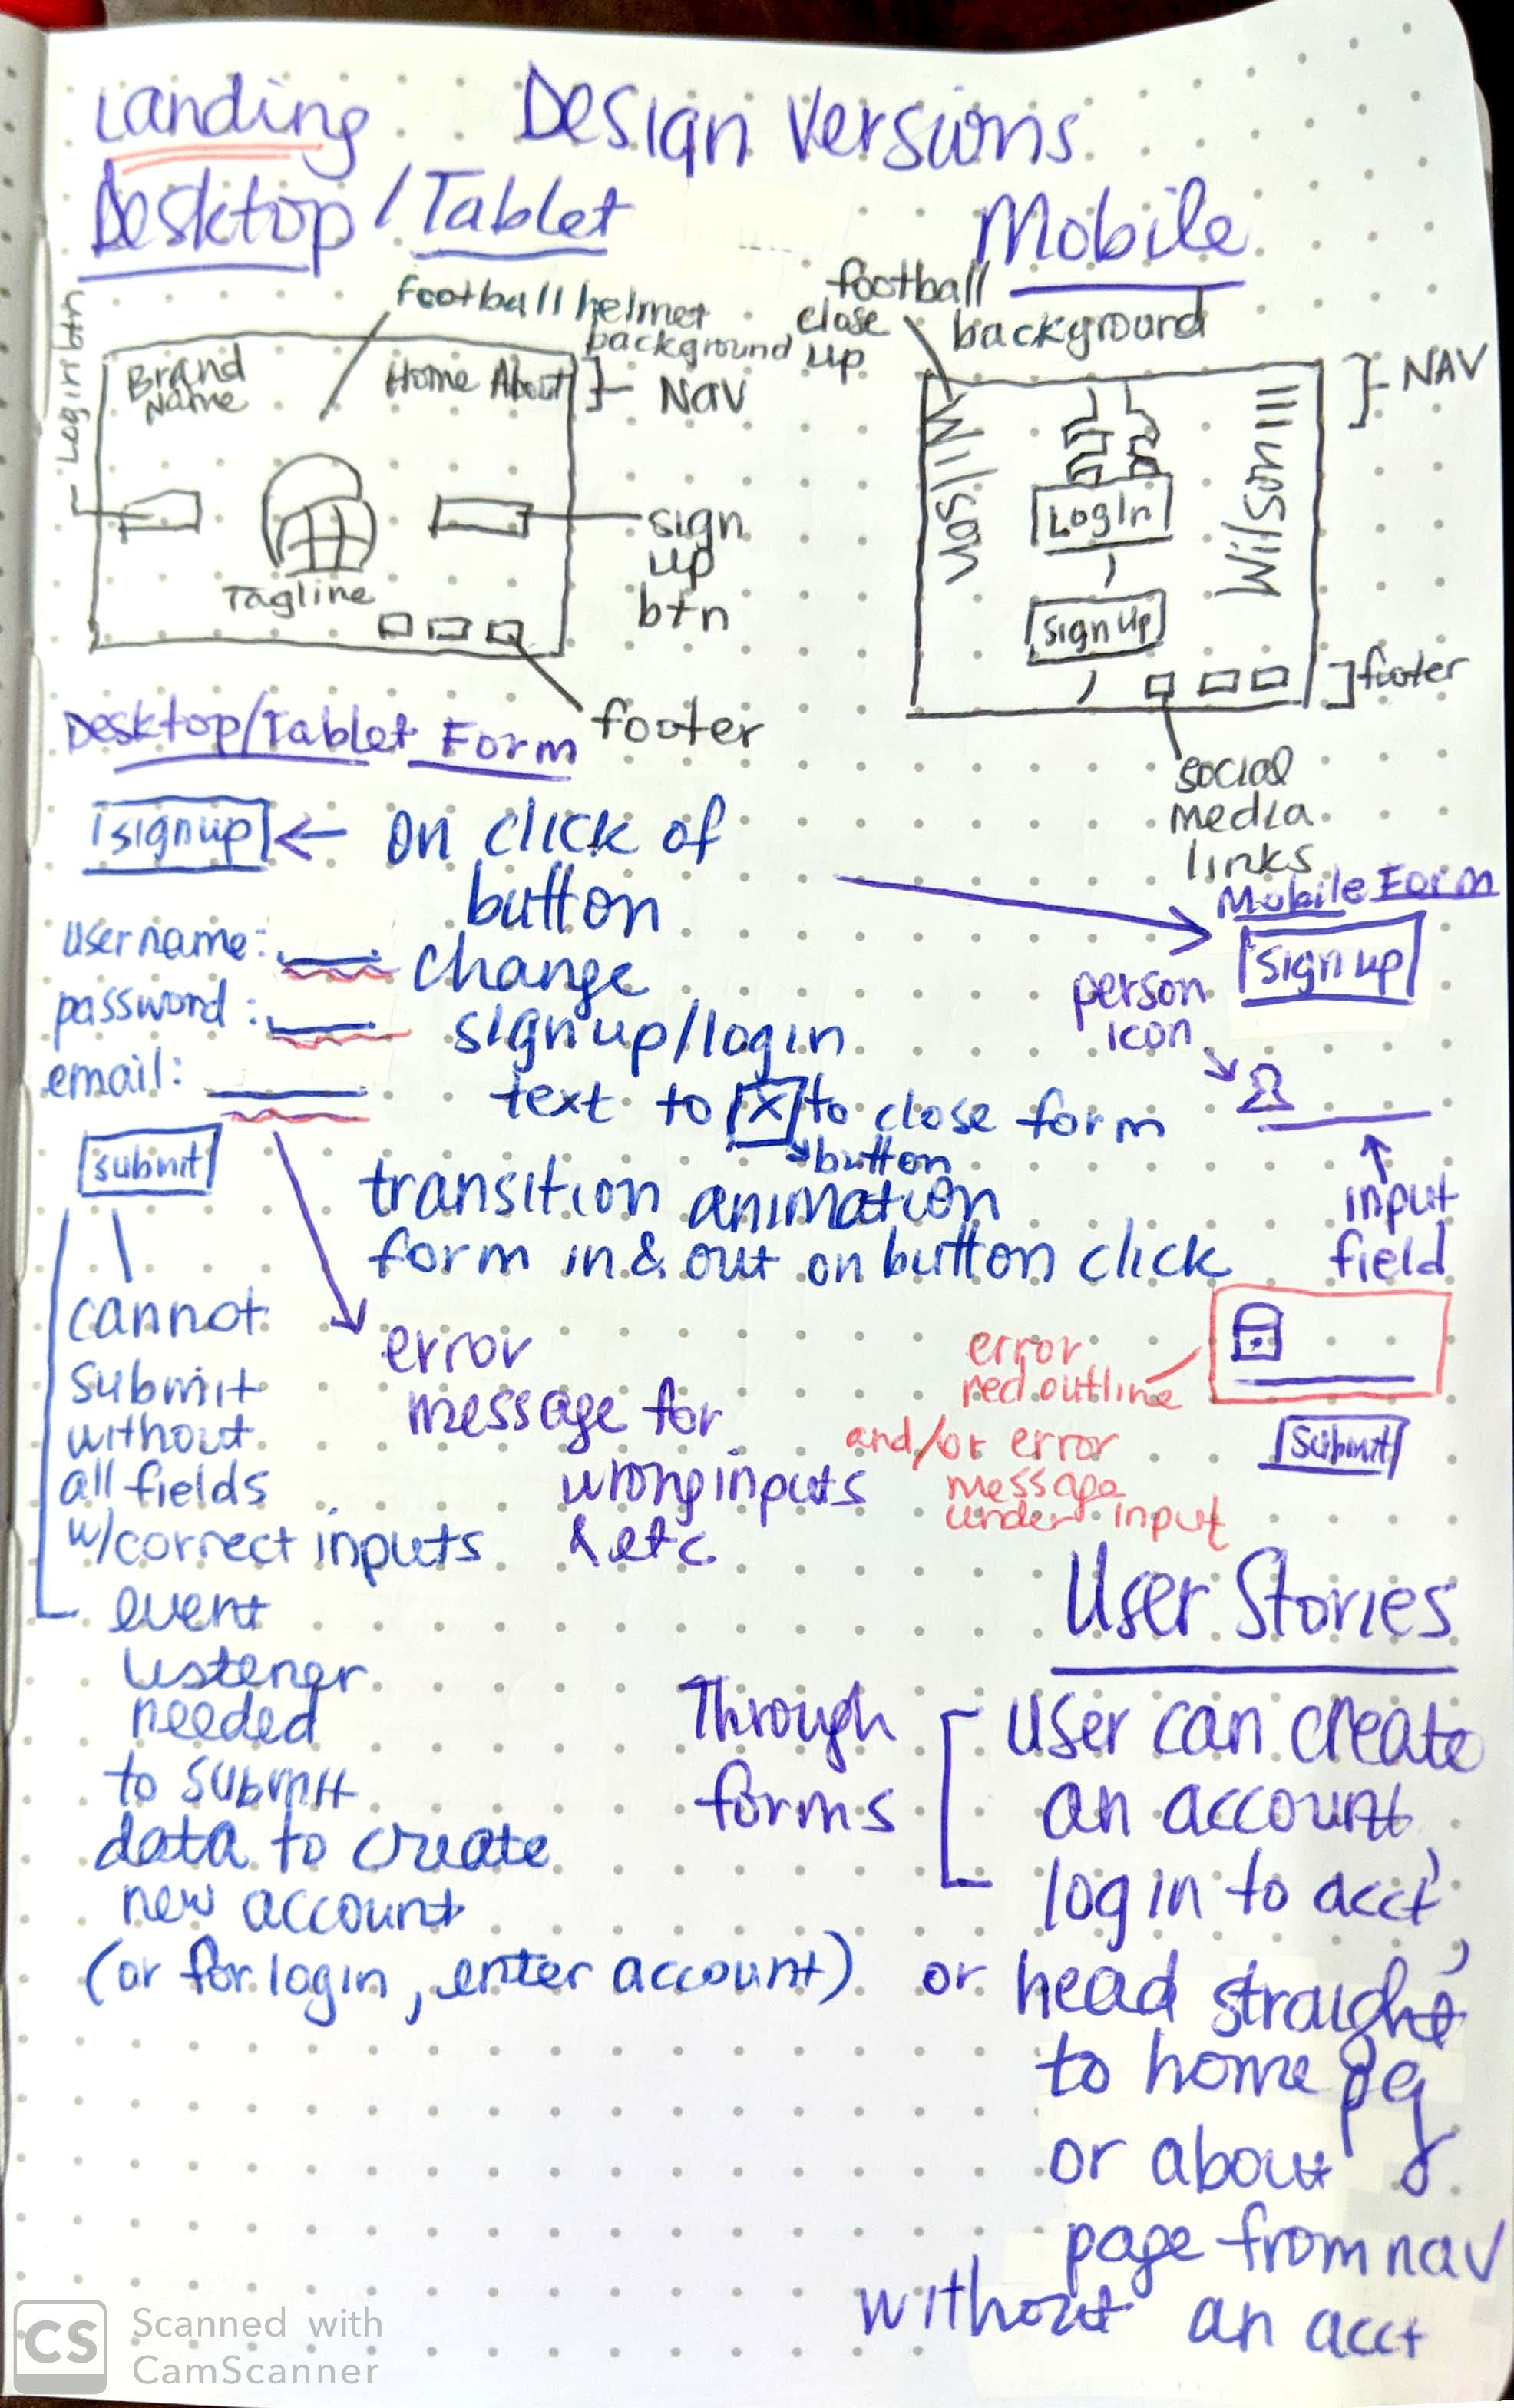 Landing
Design Versions
Desktop/Tablet
Mobile
football helmet
background
Login btn
Brand
Name
Home About
Nav
Tagline
sign
up
btn
footer
football
close
up
background
NAV
Wilson
Wilson III
LogIn
Sign Up
footer
social
media
links
Desktop/Tablet Form
signup
on click of
button
change
signup/login
text to [X] to close form
button
transition animation
form in & out on button click
username:
password:
email:
submit
cannot
submit
without
all fields
w/correct inputs
event
listener
needed
to submit
data to create
new account
(or for login, enter account)
error
message for
wrong inputs
& etc
Mobile Form
Sign up
person
icon
input
field
error
red outline
and/or error
message
under input
Submit
User Stories
Through
forms
user can create
an account,
log in to acct,
or head straight
to home pg
or about
page from nav
without an acct
CS
Scanned with
CamScanner